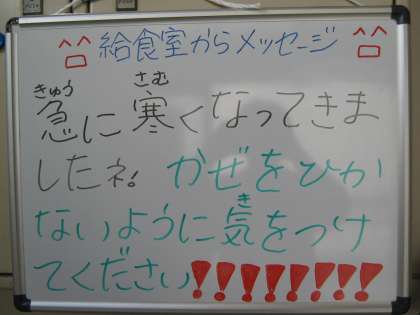 給食室からメッセージ
急に寒くなってきま
したネ。かぜをひか
ないように気をつけ
てください!!!!!!!!